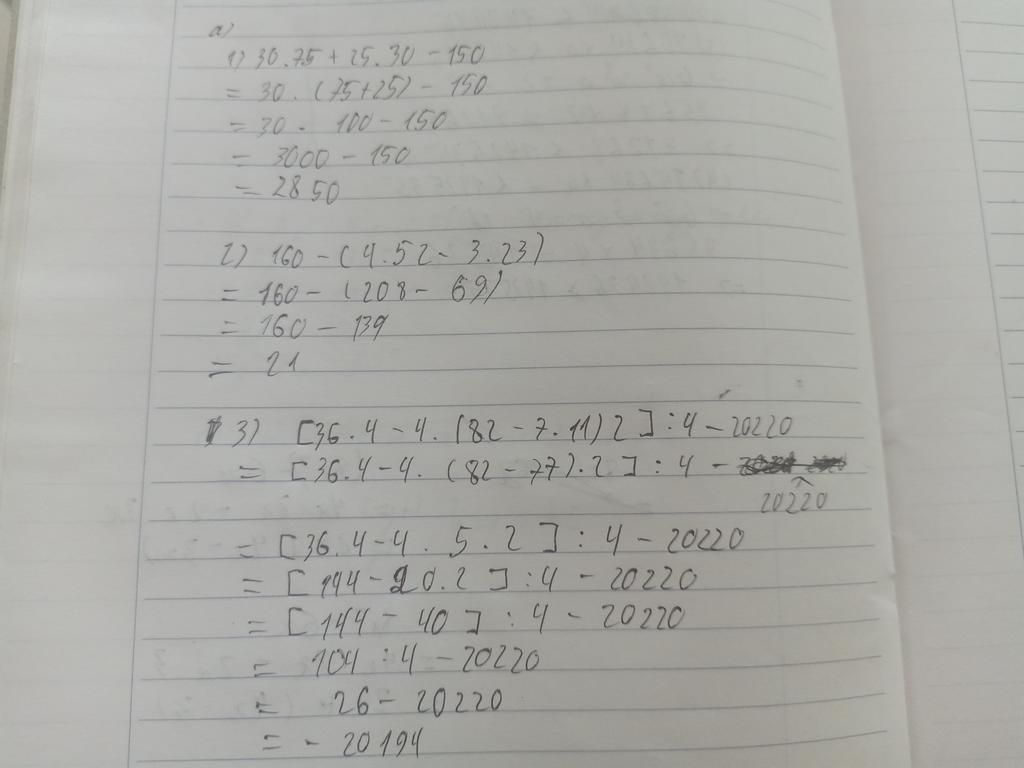 a)
1) 30.75 + 25.30 - 150
= 30. (75+25) - 150
= 30. 100 - 150
= 3000 - 150
= 2850
2) 160 - (4.52 - 3.23)
= 160 - (208 - 69)
= 160 - 139
= 21
3) [36.4 - 4. (82 - 7.11) 2] : 4 - 20220
= [36.4 - 4. (82 - 77).2] : 4 -
20220
= [36.4 - 4. 5.2] : 4 - 20220
= [144 - 20.2] : 4 - 20220
= [144 - 40] : 4 - 20220
= 104 : 4 - 20220
= 26 - 20220
= - 20194